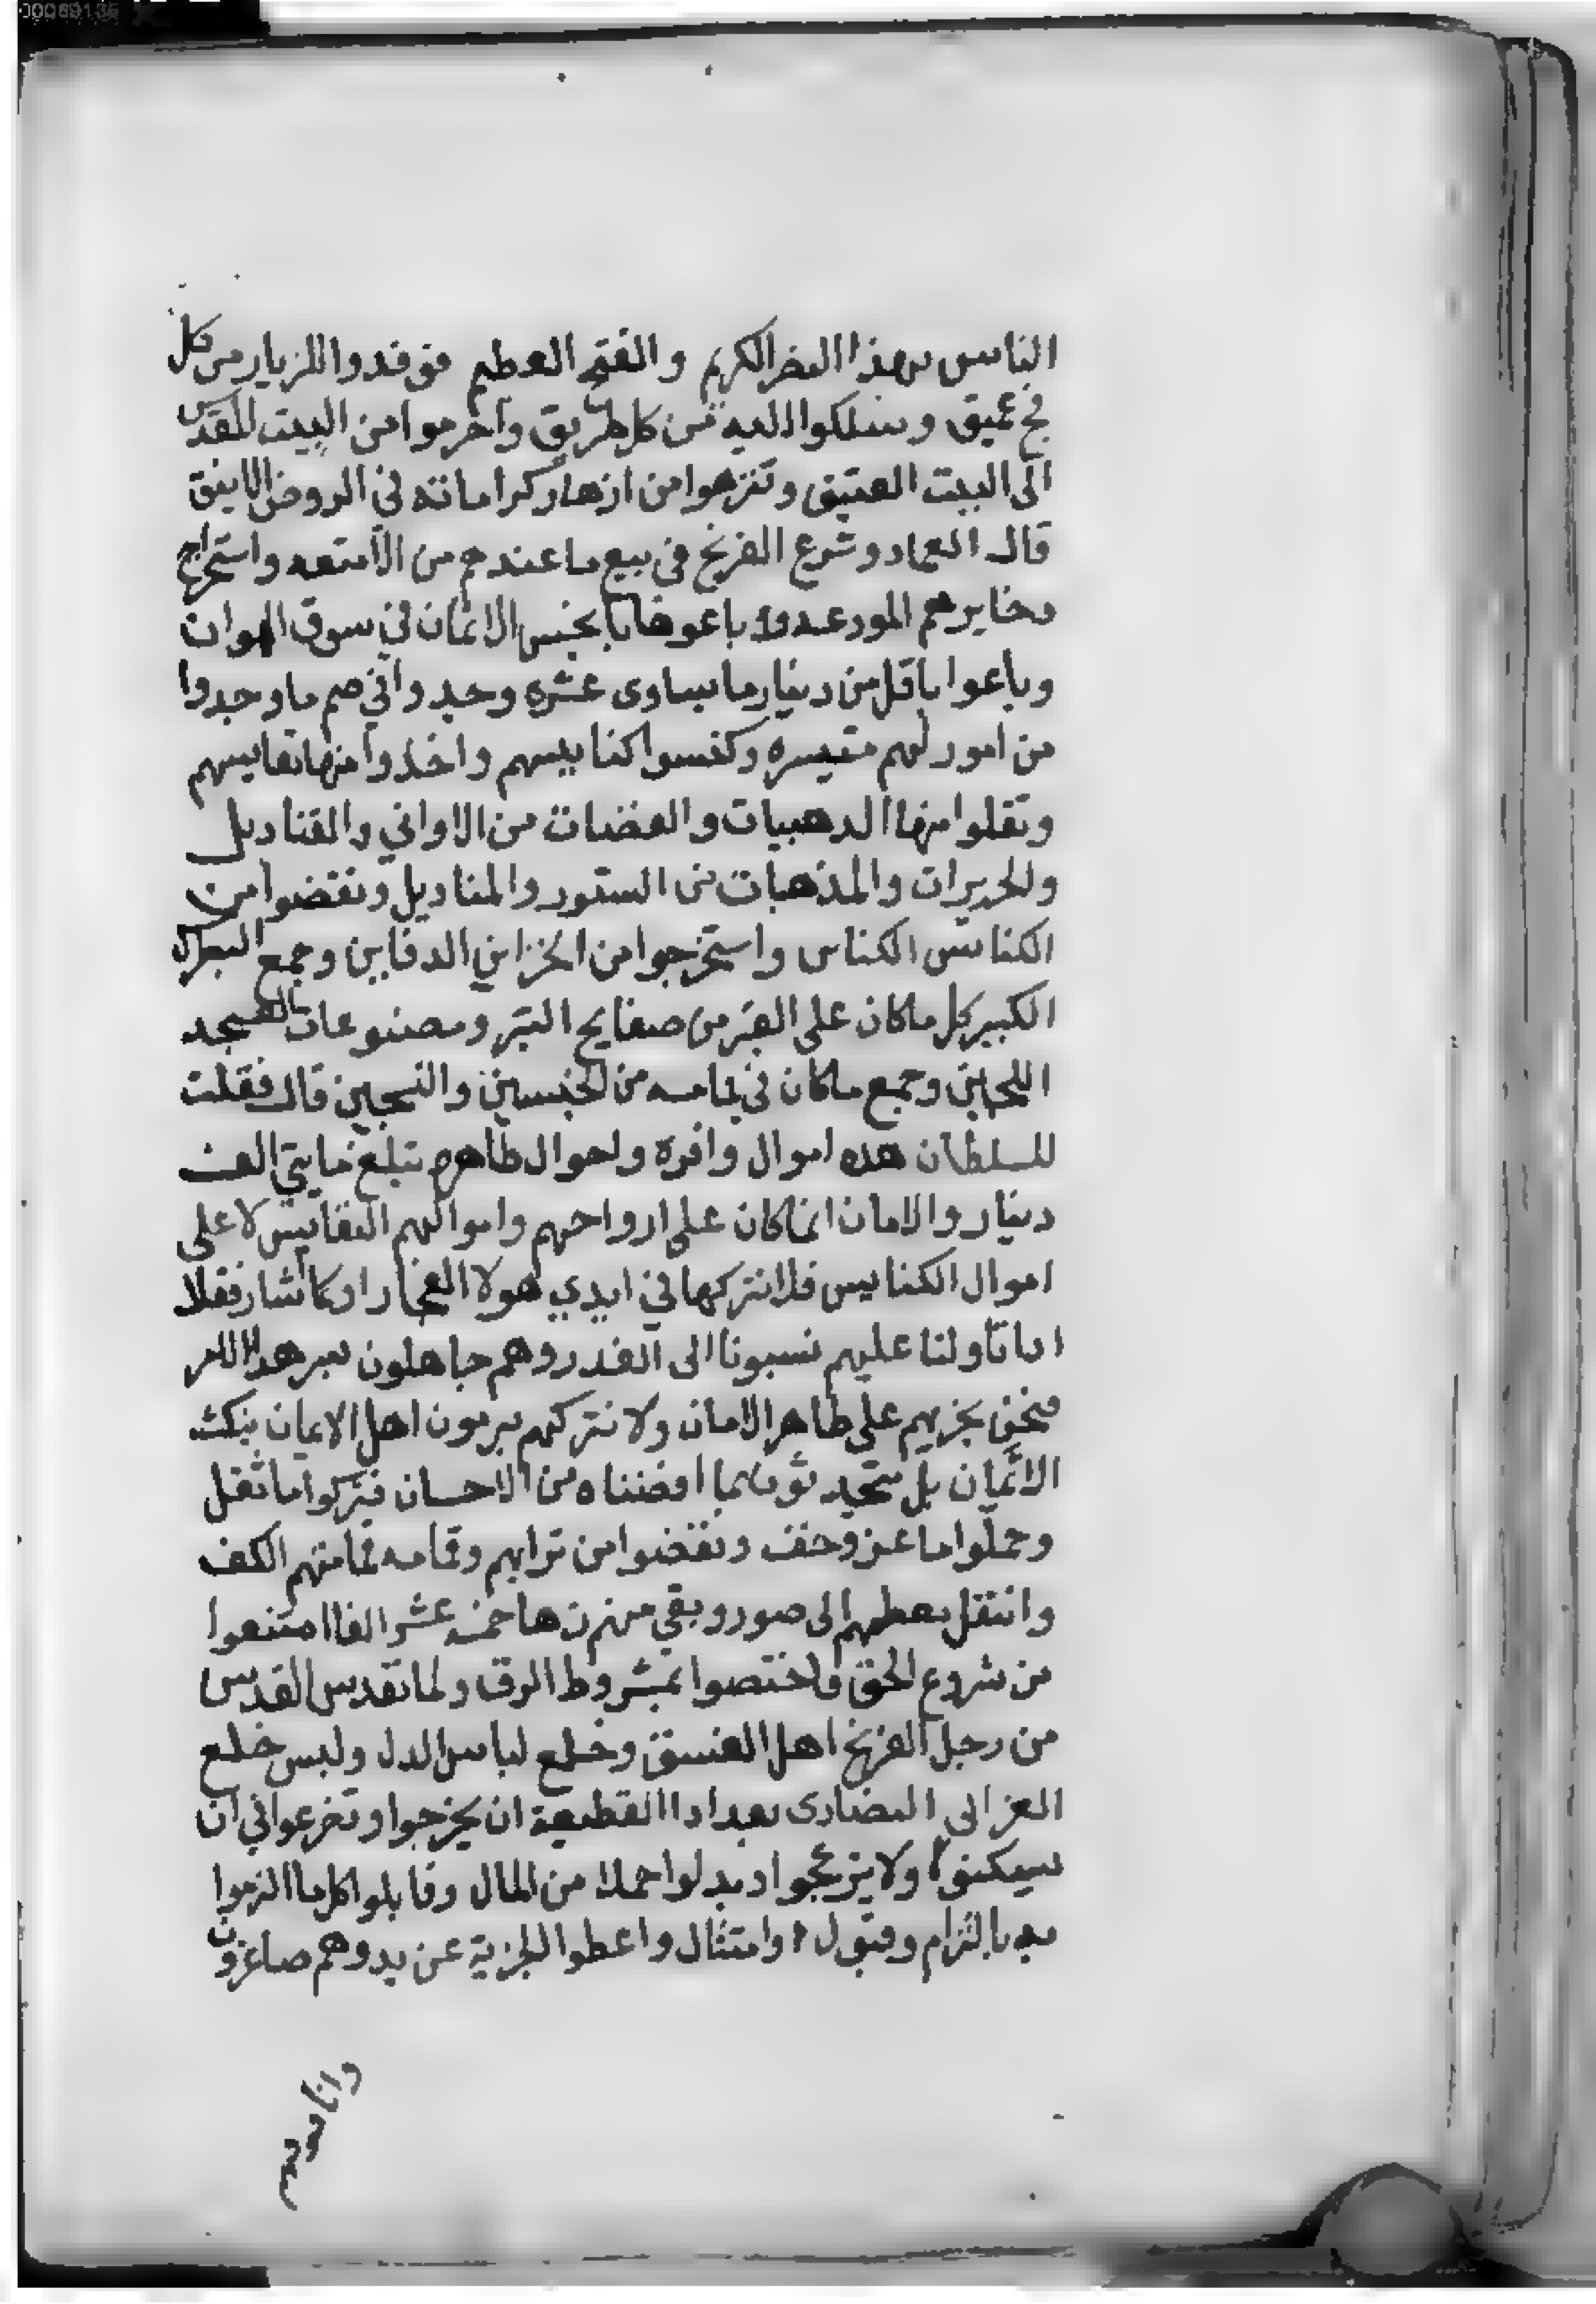 00069135
الناس بهذا النصر الكريم والفتح العظيم فوفدوا للزياره من كل
فج عميق وسلكوا اليه من كل طريق واحرموا من البيت المقدس
الى البيت العتيق وتنزهوا من ازهار كراماته في الروض الانيق
قال العماد وشرع الفرنج في بيع ما عندهم من الامتعه واستخراج
دخايرهم المودعه وباعوها بابخس الاثمان في سوق الهوان
وباعوا باقل من دينار ما يساوى عشره وجدوا في ضم ما وجدوا
من امور لهم متيسره وكنسوا كنايسهم واخذوا منها نفايسهم
ونقلوا منها الدهبيات والفضيات من الاواني والقناديل
والحريرات والمذهبات من الستور والمناديل ونفضوا من
الكنائس الكناس واستخرجوا من الخزاين الدفاين وجمع البطرك
الكبير كل ما كان على القبر من صفايح التبر ومصنوعات العسجد
اللجين وجمع ما كان في قمامه من الجنسين والنسجين قال فقلت
للسلطان هده اموال وافره واحوال ظاهره تبلغ مايتي الف
دينار والامان انما كان على ارواحهم واموالهم النفايس لا على
اموال الكنايس فلا نتركها في ايدي هولا الفجار فقال
ادا تاولنا عليهم نسبونا الى الغدر وهم جاهلون بسر هدا الامر
فنحن نجريهم على ظاهر الامان ولا نتركهم يرمون اهل الايمان بنكث
الائمان بل بما افضناه من الاحسان فتركوا ما ثقل
وحملوا ما عز وخف ونفضوا من ترابهم وقمامه قمامتهم الكف
وانتقل بعضهم الى صور وبقي منهم زها خمسه عشر الفا امتنعوا
من شروع الحق فاختصوا بمشروط الرق ولما تقدس القدس
من رجس الفرنج اهل الفسق وخلع لباس الدل ولبس خلع
العز ابى النصارى بعد ادا القطيعة ان يخرجوا وتضرعوا في ان
يسكنوا ولا ينزعجوا وبدلوا جملا من المال وقابلوا كل ما الزموا
به بالتزام وقبول وامتثال واعطوا الجزية عن يد وهم صاغرون